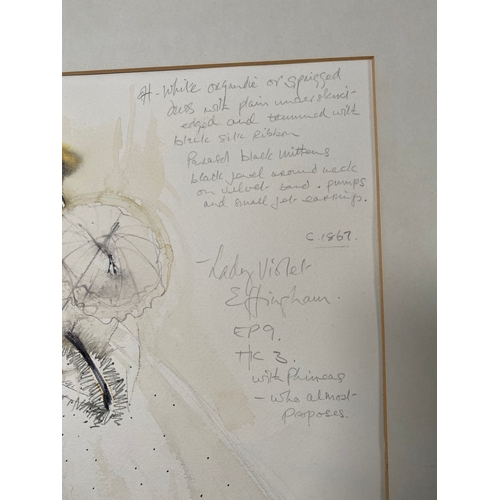 - White organdie or sprigged
dress with plain underskirt -
edged and trimmed with
black silk ribbon
black mittens
black jewel around neck
on velvet band. pumps
and small jet earrings.
c. 1867.
- Lady Violet
Effingham.
EP 9.
T/C 3.
with Phineas
- who almost
proposes.